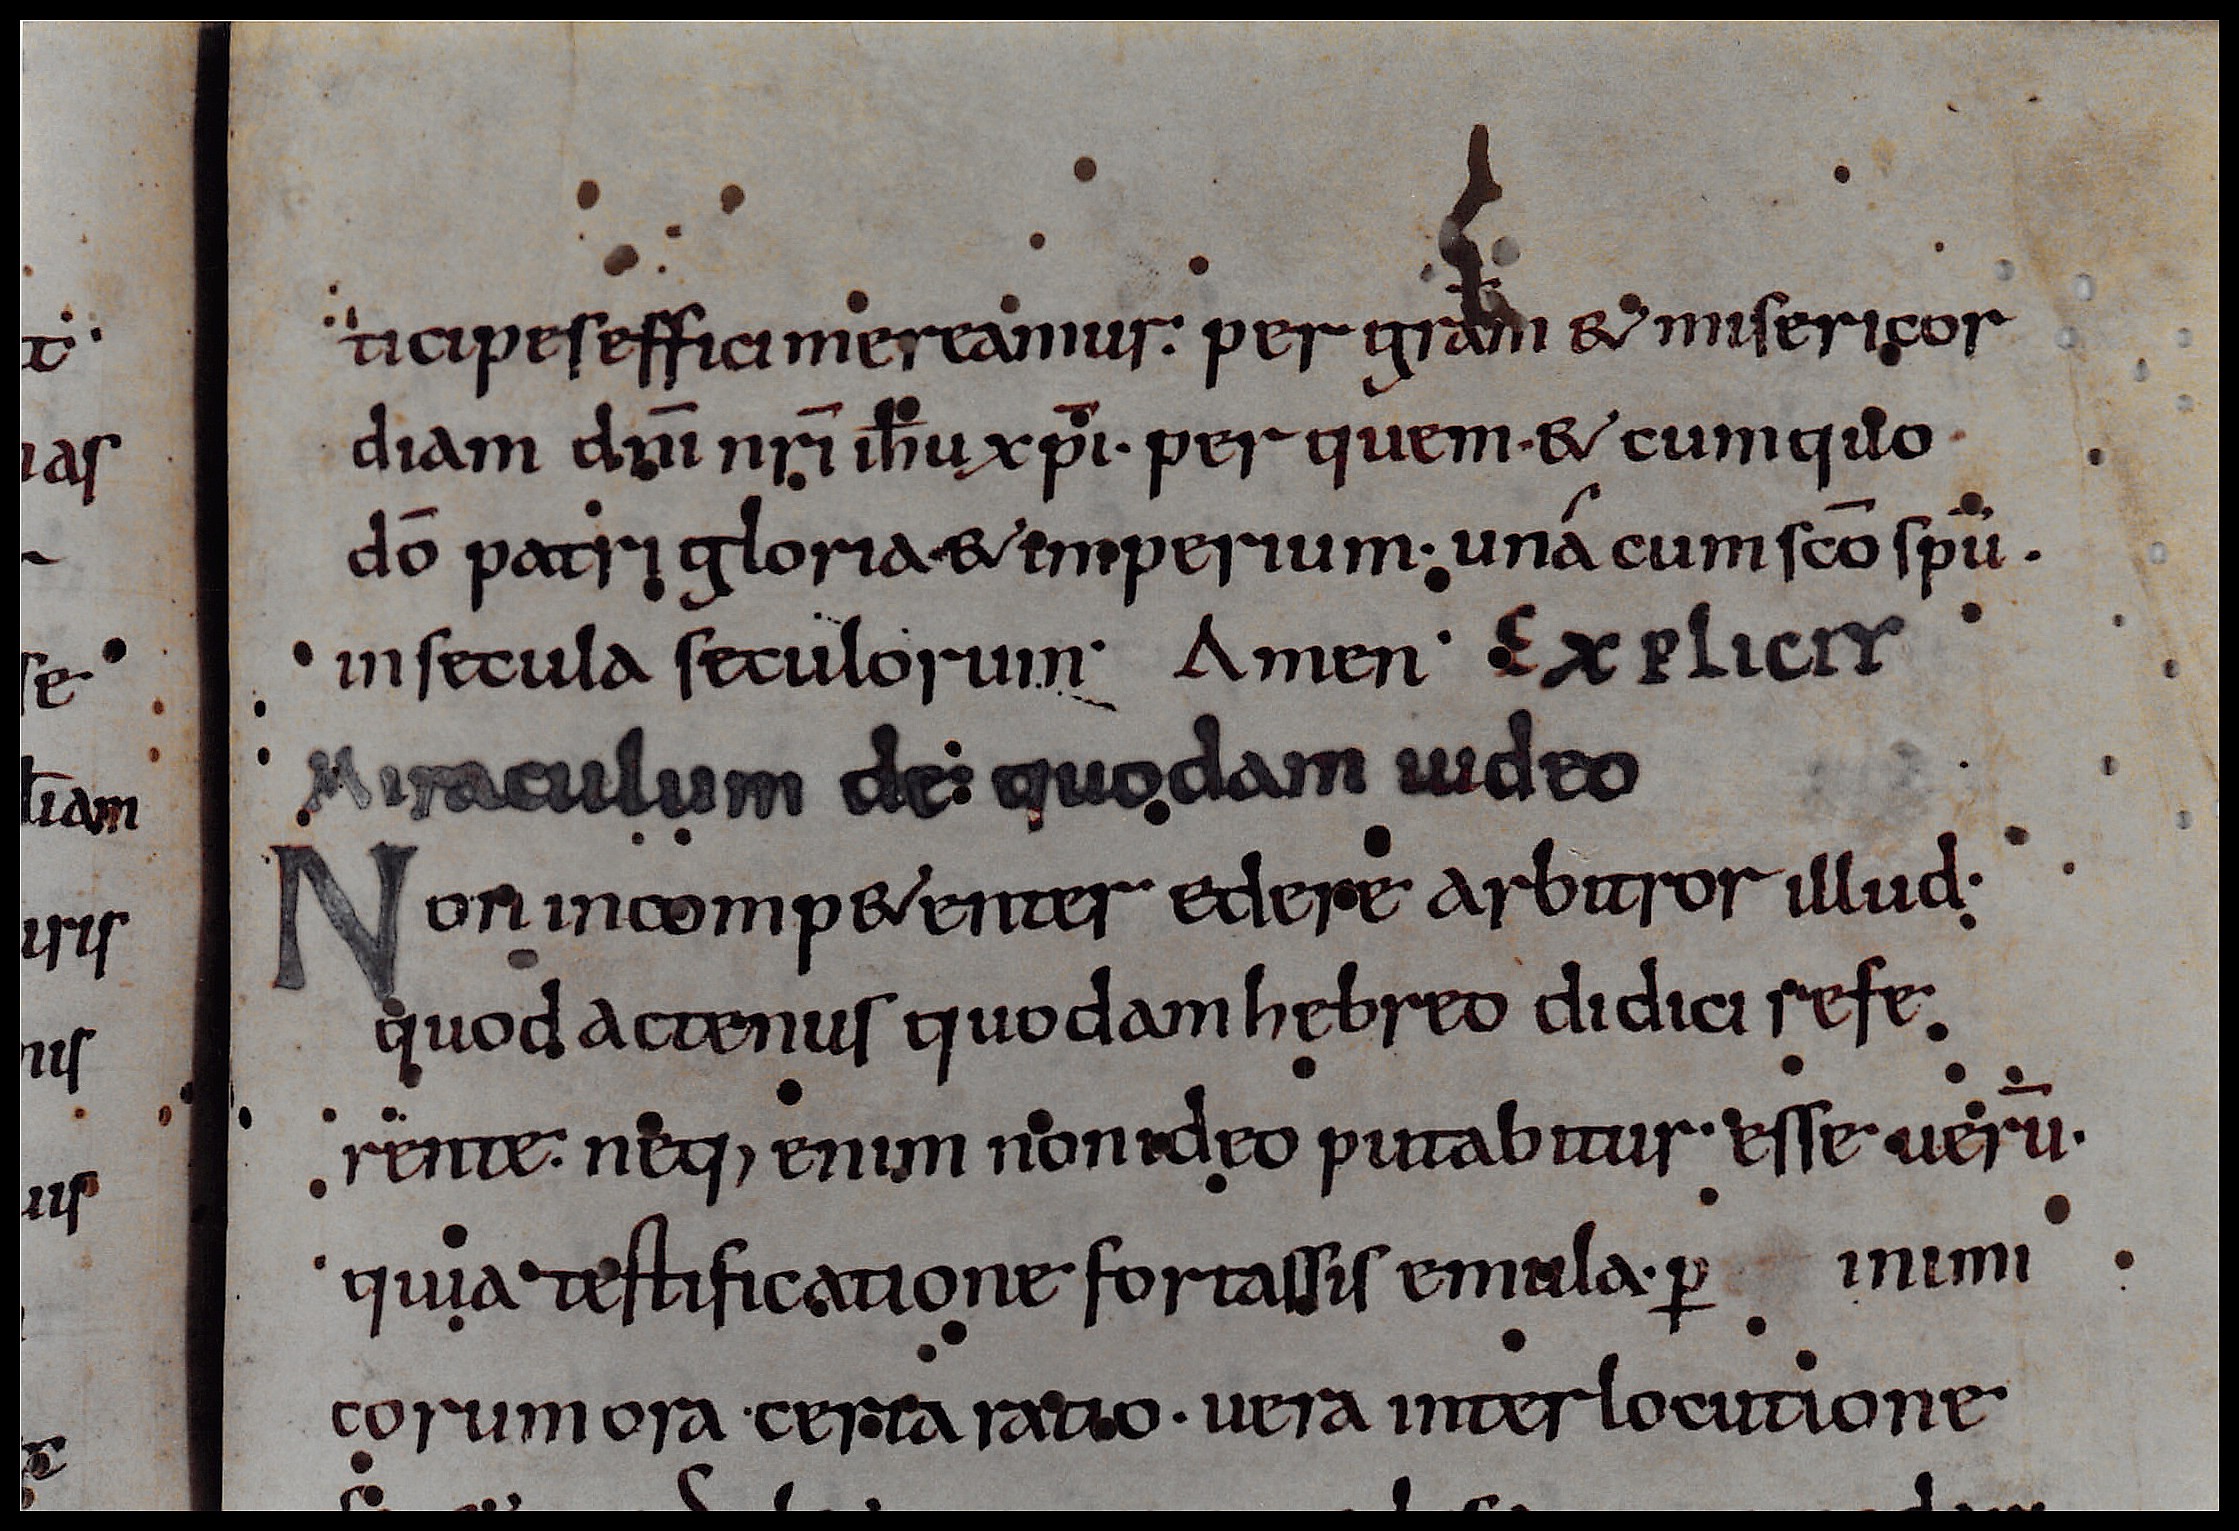 ticipes effici mereamur: per gratm & misericor
diam dn̄i nr̄i ih̄u xp̄i. per quem. & cum quo
dō patri gloria. & imperium. uná cum scō spū.
in secula seculorum. Amen. Explicit
Miraculum de quodam iudeo
Non incomp&enter edere arbitror illud;
quod actenus quodam hebreo didici refe
rente. neq; enim non ideo putabitur. esse uerū.
quia testificatione fortassis emula. ꝑ inimi
corum ora. certa ratio. uera interlocutione
t
as
se
t̄iam
uris
us